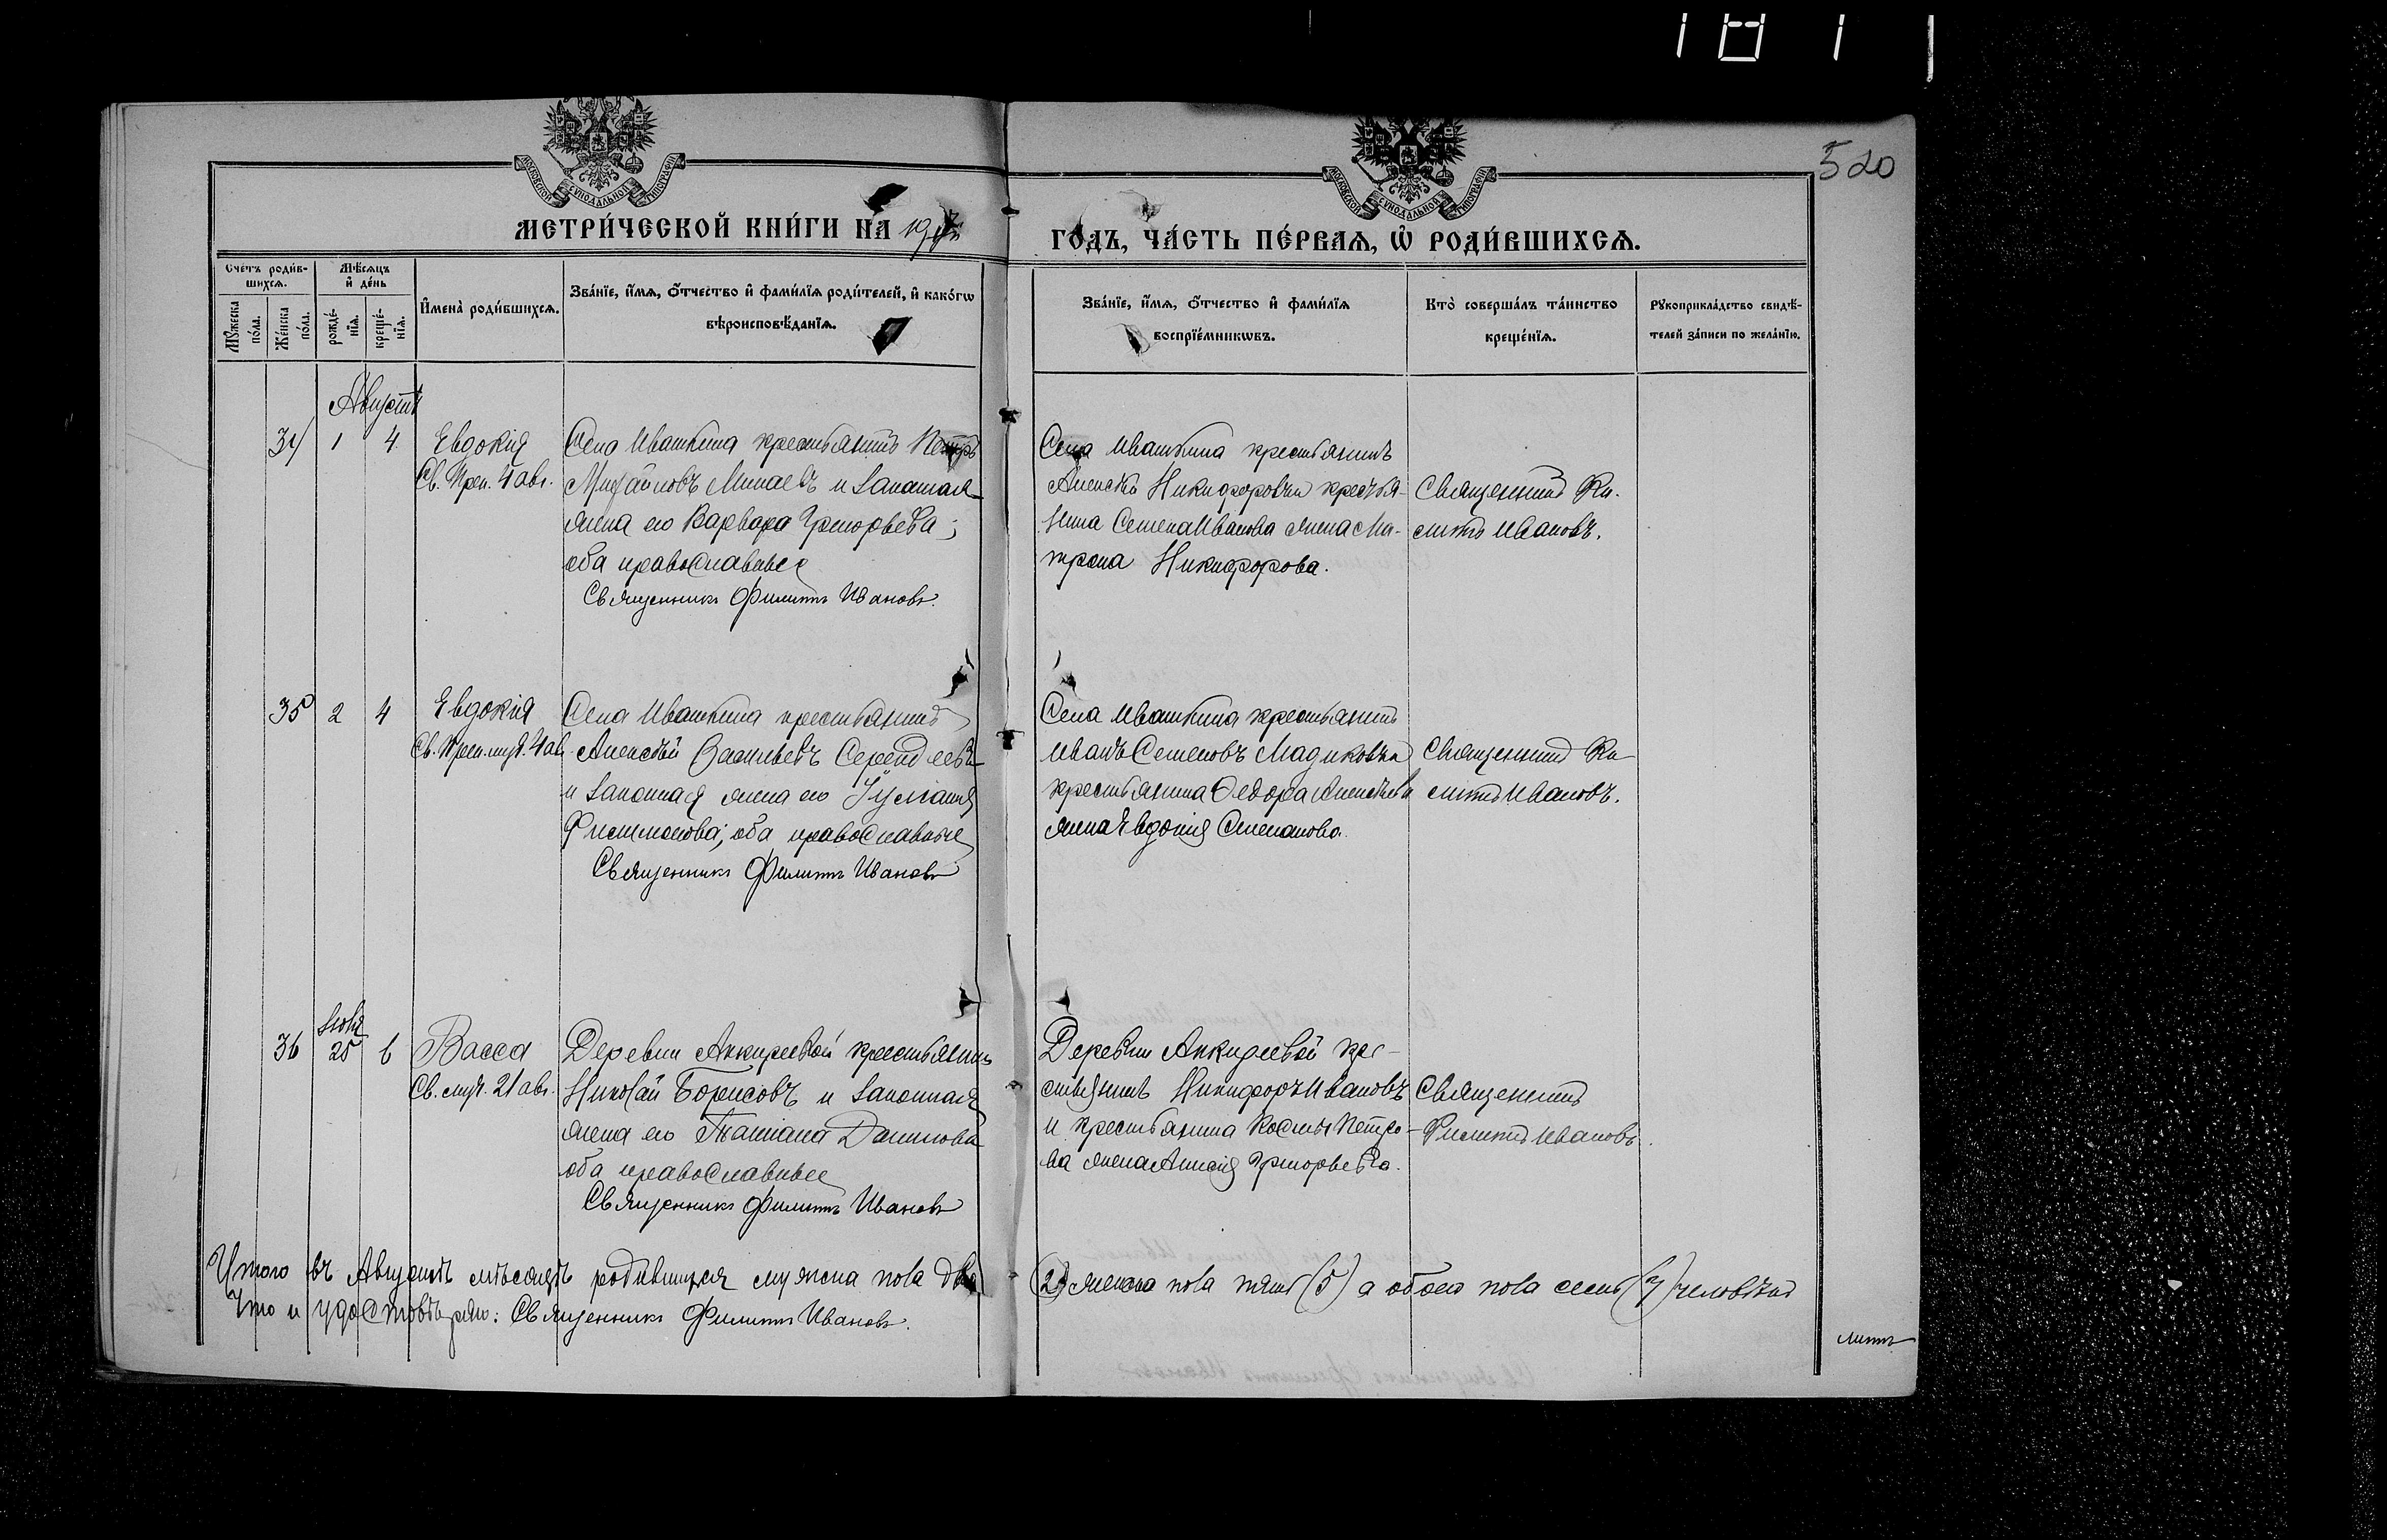 520
МОСКОВСКОЙ СѴНОДАЛЬНОЙ ТИПОГРАФІИ
МОСКОВСКОЙ СѴНОДАЛЬНОЙ ТИПОГРАФІИ
МЕТРИ́ЧЕСКОЙ КНИ́ГИ НА 19
ГО́ДЪ, ЧА́СТЬ ПЕ́РВАѦ, Ѽ РОДИ́ВШИХСѦ.
Счетъ роди́в-
шихсѧ.
Мꙋ́жеска по́ла.
Же́нска по́ла.
Мѣ́сѧцъ и҆ де́нь
рожде́-
нїѧ.
креще́-
нїѧ.
И҆мена̀ роди́вшихсѧ.
Зва́нїе, и҆́мѧ, ѻ҆́тчество и҆ фами́лїѧ роди́телей, и҆ како́гѡ
вѣроисповѣ́данїѧ.
Зва́нїе, и҆́мѧ, ѻ҆́тчество и҆ фами́лїѧ
воспрїе́мникѡвъ.
Кто̀ соверша́лъ та́инство
креще́нїѧ.
Рꙋкоприкла́дство свидѣ́-
телей за́писи по жела́нїю.
Августъ
34 1 4 Евдокія
Св. Преп. 4 авг.
Села Ивашкина крестьянинъ Петръ
Михайловъ Минаевъ и законная
жена его Варвара Григорьева;
оба православные
Священникъ Филиппъ Ивановъ.
Села Ивашкина крестьянинъ
Алексѣй Никифоровъ и крестья-
нина Семена Иванова жена Ма-
трона Никифорова.
Священникъ Фи-
липпъ Ивановъ.
35 2 4 Евдокія
Св. Преп. муч. 4 ав.
Села Ивашкина крестьянинъ
Алексѣй Васильевъ
и законная жена его Іуліанія
Филимонова; оба православные
Священникъ Филиппъ Ивановъ
Села Ивашкина крестьянинъ
Иванъ Семеновъ Мадиковъ и
крестьянина Ѳедора Алексѣева
жена Евдокія Степанова.
Священникъ Фи-
липпъ Ивановъ.
Іюля
36 25 6 Васса
Св. муч. 21 авг.
Деревни Аккиреевой крестьянинъ
Николай Борисовъ и законная
жена его Татіана Данилова
оба православные
Священникъ Филиппъ Ивановъ
Деревни Аккиреевой кре-
стьянинъ Никифоръ Ивановъ
и крестьянина Космы Петро-
ва жена Анисія Григорьева.
Священникъ
Филиппъ Ивановъ.
Итого въ Августѣ мѣсяцѣ родившихся мужска пола два
(2) женска пола пять (5) а обоего пола семь (7) человѣкъ
Что и удостовѣряю: Священникъ Филиппъ Ивановъ.
липпъ